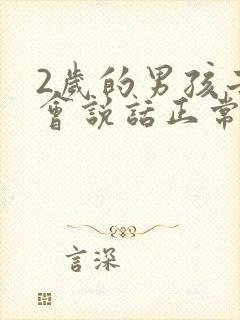 2歲的男孩
會說話正常
言深